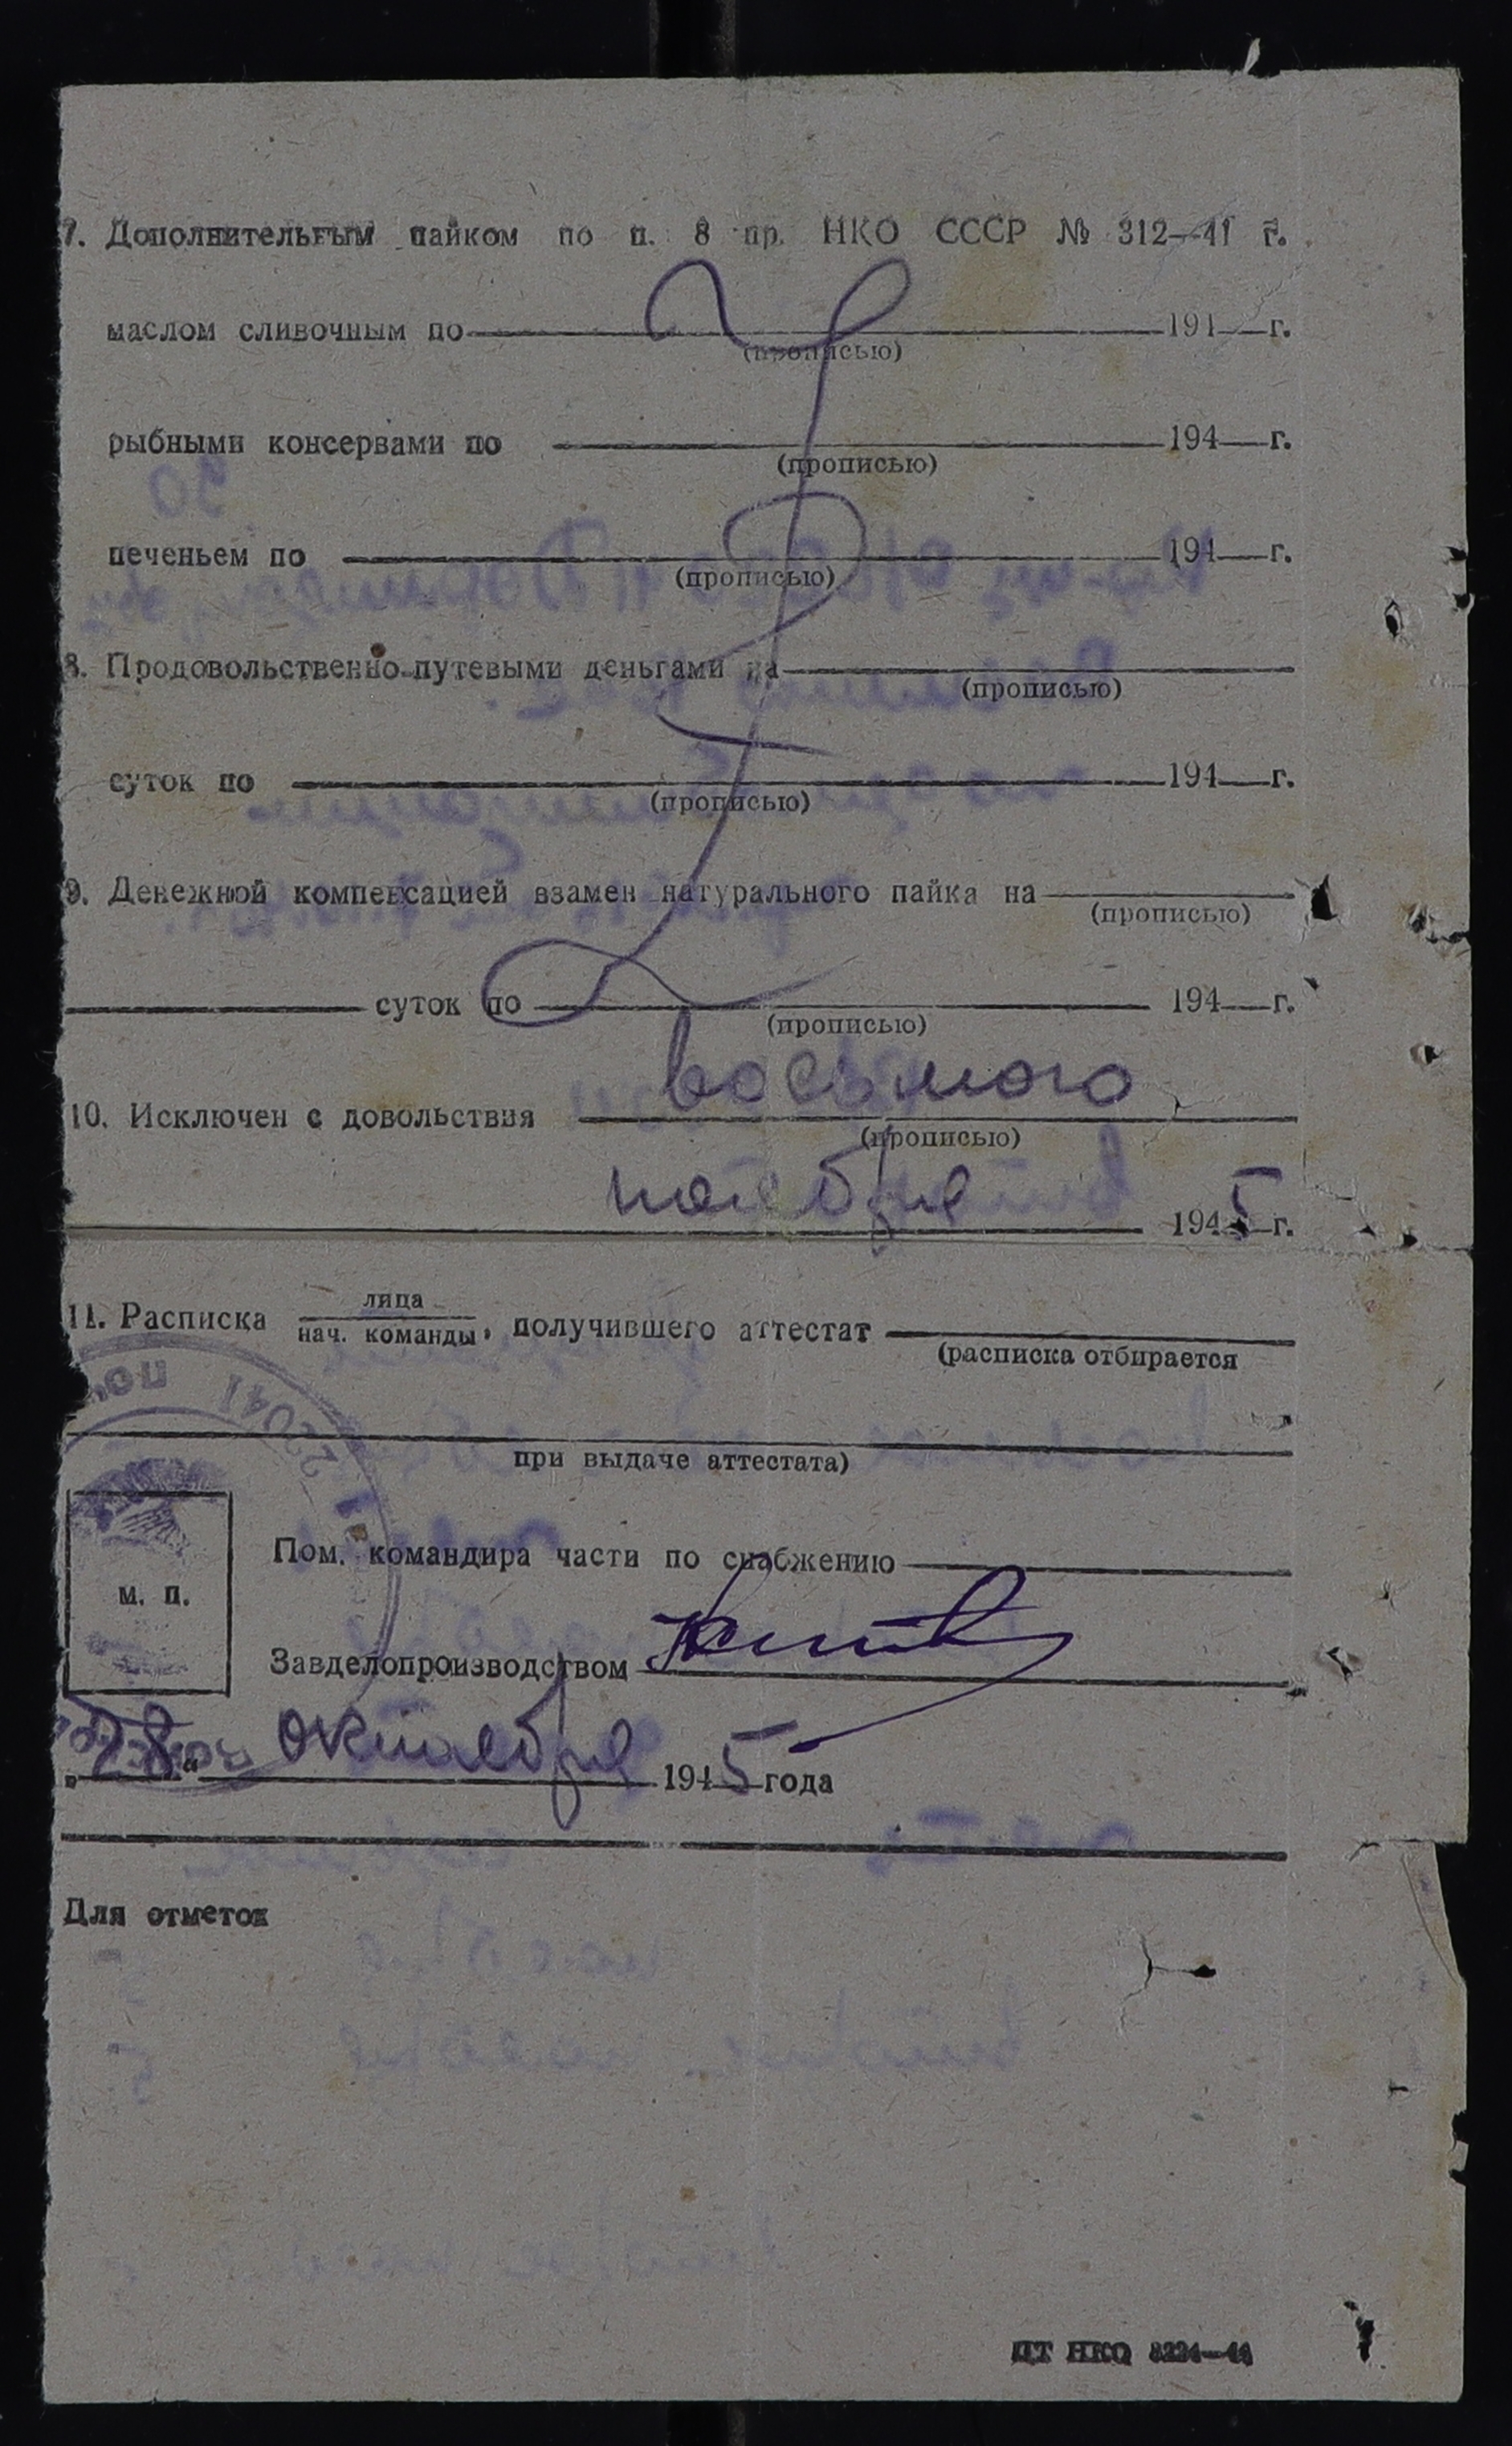 7. Дополнительным пайком по п. 8 пр. НКО СССР № 312—41 г.
маслом сливочным по 194 г.
(прописью)
рыбными консервами по 194 г.
(прописью)
печеньем по 194 г.
(прописью)
8. Продовольственно-путевыми деньгами на
(прописью)
суток по 194 г.
(прописью)
9. Денежной компенсацией взамен натурального пайка на
(прописью)
суток по 194 г.
(прописью)
восьмого
10. Исключен с довольствия
(прописью)
ноября 1945 г.
11. Расписка лица
нач. команды, получившего аттестат
(расписка отбирается
при выдаче аттестата)
22041
м. п.
Пом. командира части по снабжению
Завделопроизводством
„28“ октября 1945 года
Для отметок